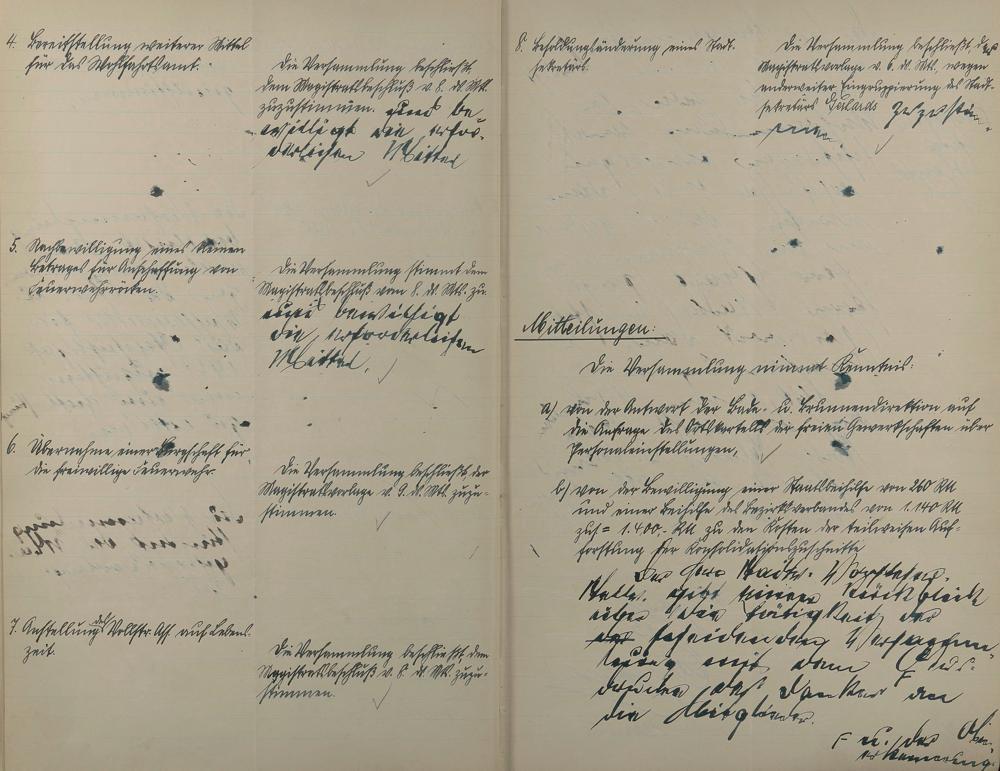 4. Bereitstellung weiterer Mittel
für das Wohlfahrtsamt.
Die Versammlung beschließt,
dem Magistratsbeschluß v. 8. ds. Mts.
zuzustimmen. und be-
willigt die erfor-
derlichen Mittel
5. Nachbewilligung eines kleinen
Betrages für Anschaffung von
Feuerwehrröcken.
Die Versammlung stimmt dem
Magistratsbeschluß vom 8. ds. Mts. zu
und bewilligt
die erforderlichen
Mittel.
6. Übernahme einer Bürgschaft für
die freiwillige Feuerwehr.
Die Versammlung beschließt, der
Magistratsvorlage v. 9. ds. Mts. zuzu-
stimmen.
7. Anstellung des Vollstr. Ass. auf Lebens-
zeit.
Die Versammlung beschließt, dem
Magistratsbeschluß v. 8. ds. Mts. zuzu-
stimmen.
8. Besoldungsänderung eines Stadt-
sekretärs.
Die Versammlung beschließt, der
Magistratsvorlage v. 6. ds. Mts. wegen
anderweiter Eingruppierung des Stadt-
sekretärs zuzustim-
men
Mitteilungen:
Die Versammlung nimmt Kenntnis:
a) von der Antwort der Bade- u. Brunnendirektion auf
die Anfrage des Ortskartells der freien Gewerkschaften über
Personaleinstellungen,
b) von der Bewilligung einer Staatsbeihilfe von 260 RM
und einer Beihilfe des Bezirksverbandes von 1.140 RM
zus = 1.400.- RM zu den Kosten der teilweisen Auf-
forstung der Konsolidationszuschnitte
Der Herr Stadtv. Vorsteher
gibt einen Rückblick
über die Tätigkeit der
scheidenden Versamm-
lung mit dem Aus-
drucke des Dankes an
die Mitglieder.
F u. der